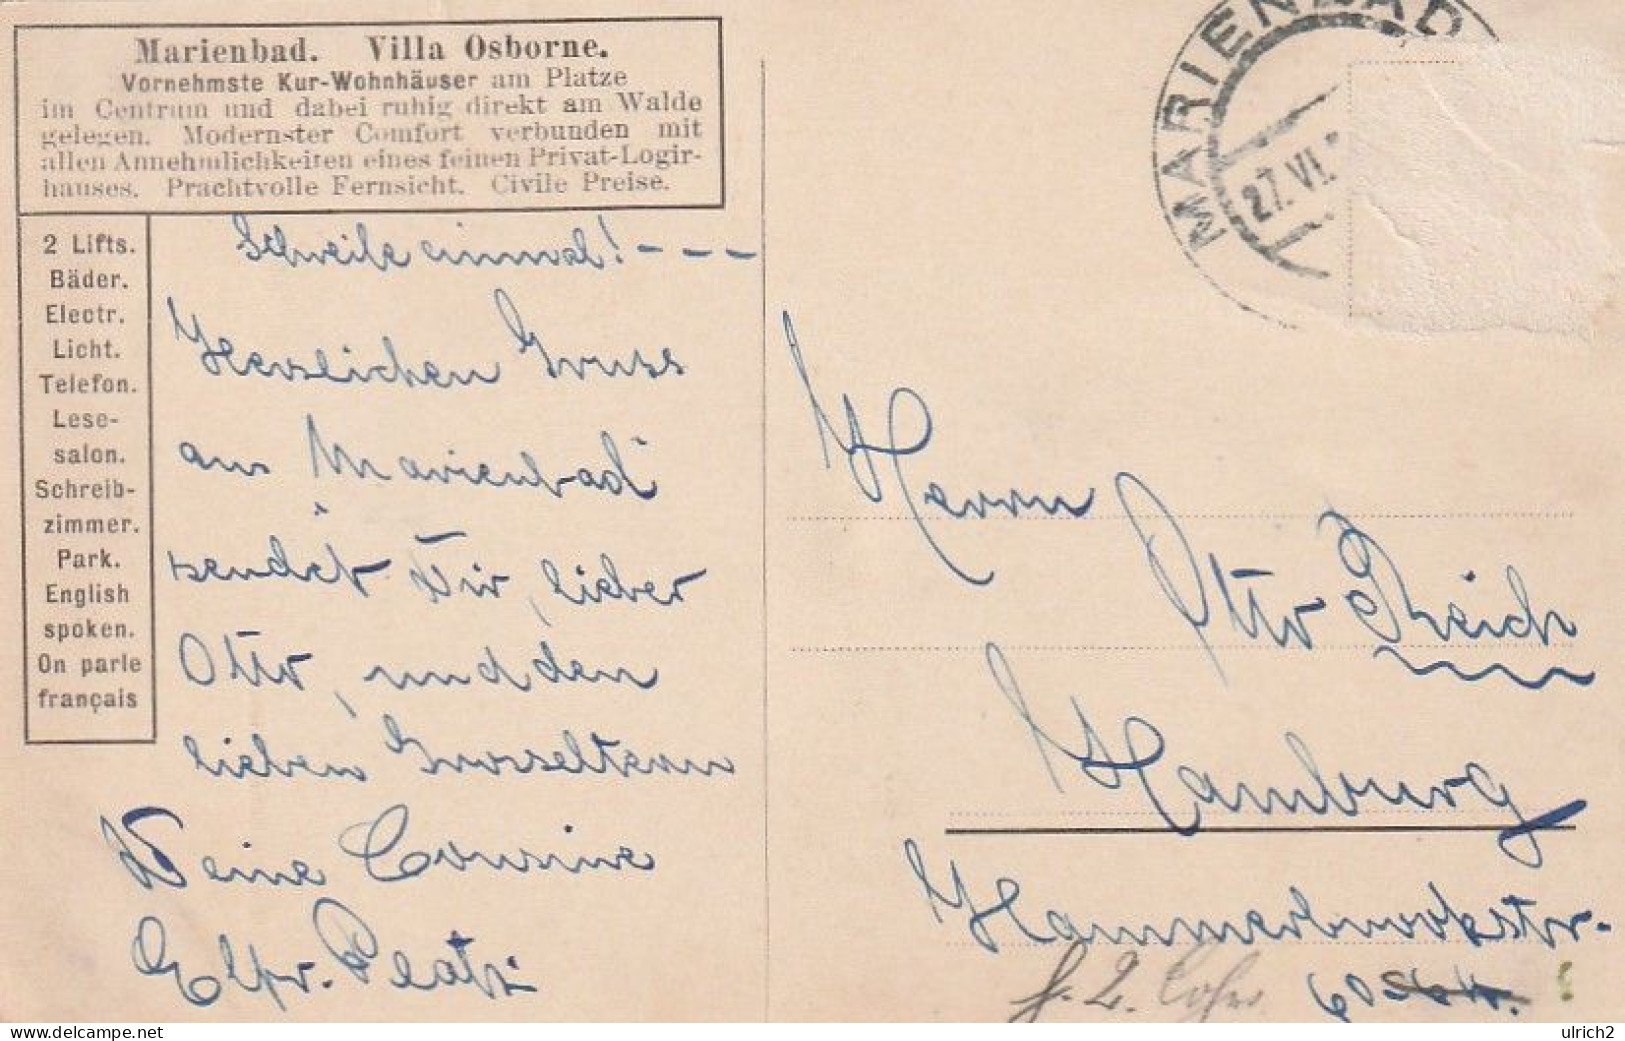 Marienbad. Villa Osborne.
Vornehmste Kur-Wohnhäuser am Platze
im Centrum und dabei ruhig direkt am Walde
gelegen. Modernster Comfort verbunden mit
allen Annehmlichkeiten eines feinen Privat-Logir-
hauses. Prachtvolle Fernsicht. Civile Preise.
2 Lifts.
Bäder.
Electr.
Licht.
Telefon.
Lese-
salon.
Schreib-
zimmer.
Park.
English
spoken.
On parle
français
Schreibe einmal! - - -
Herzlichen Gruss
aus Marienbad
sendet Dir, lieber
Otto, und den
lieben Grosseltern
Deine Cousine
MARIENBAD
27.VI.
Herrn
Otto Reich
Hamburg
Hammerbrookstr.
60
ulrich2